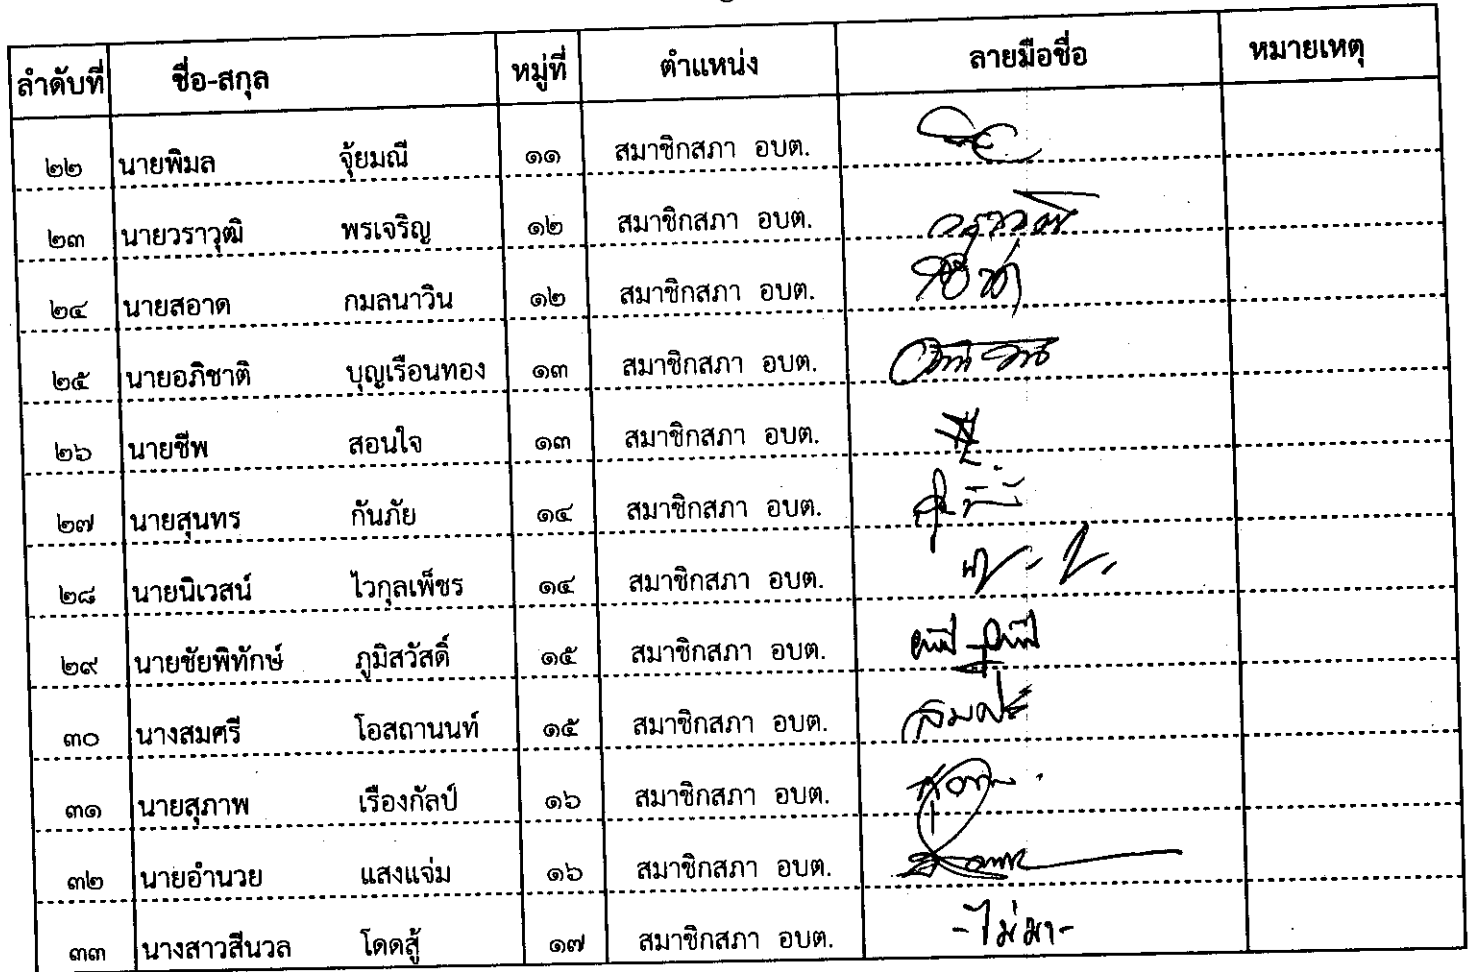 ลำดับที่ ชื่อ-สกุล หมู่ที่ ตำแหน่ง ลายมือชื่อ หมายเหตุ
๒๒ นายพิมล จุ้ยมณี ๑๑ สมาชิกสภา อบต.
๒๓ นายวราวุฒิ พรเจริญ ๑๒ สมาชิกสภา อบต.
๒๔ นายสอาด กมลนาวิน ๑๒ สมาชิกสภา อบต.
๒๕ นายอภิชาติ บุญเรือนทอง ๑๓ สมาชิกสภา อบต.
๒๖ นายชีพ สอนใจ ๑๓ สมาชิกสภา อบต.
๒๗ นายสุนทร กันภัย ๑๔ สมาชิกสภา อบต.
๒๘ นายนิเวสน์ ไวกูลเพ็ชร ๑๔ สมาชิกสภา อบต.
๒๙ นายชัยพิทักษ์ ภูมิสวัสดิ์ ๑๕ สมาชิกสภา อบต.
๓๐ นางสมศรี โอสถานนท์ ๑๕ สมาชิกสภา อบต.
๓๑ นายสุภาพ เรืองกัลป์ ๑๖ สมาชิกสภา อบต.
๓๒ นายอำนวย แสงแจ่ม ๑๖ สมาชิกสภา อบต.
๓๓ นางสาวสีนวล โดดสู้ ๑๗ สมาชิกสภา อบต. -ไม่มา-